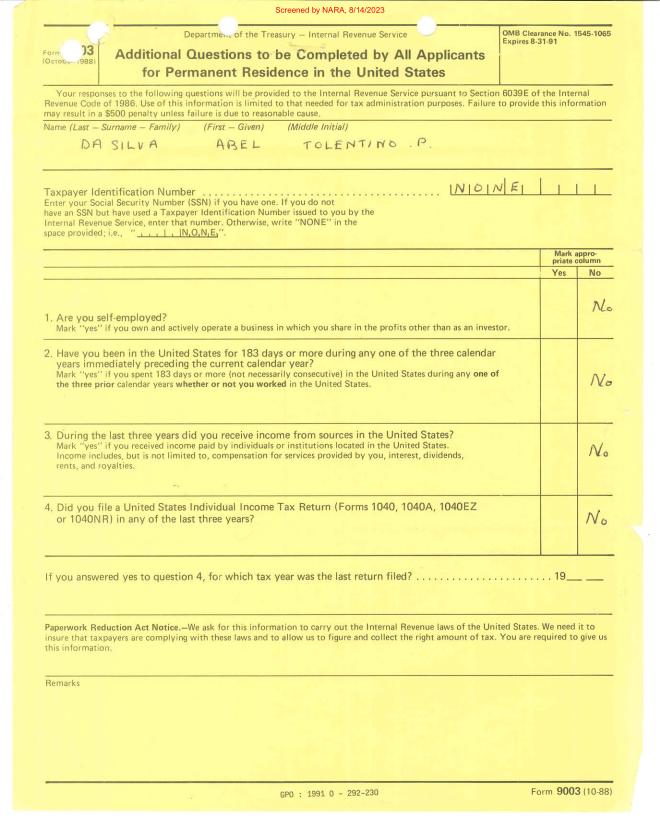 Screened by NARA, 8/14/2023
Department of the Treasury — Internal Revenue Service
OMB Clearance No. 1545-1065
Expires 8-31-91
Form 03
(October 1988)
Additional Questions to be Completed by All Applicants
for Permanent Residence in the United States
Your responses to the following questions will be provided to the Internal Revenue Service pursuant to Section 6039E of the Internal
Revenue Code of 1986. Use of this information is limited to that needed for tax administration purposes. Failure to provide this information
may result in a $500 penalty unless failure is due to reasonable cause.
Name (Last — Surname — Family) (First — Given) (Middle Initial)
DA SILVA ABEL TOLENTINO .P.
Taxpayer Identification Number ........................................ N O N E
Enter your Social Security Number (SSN) if you have one. If you do not
have an SSN but have used a Taxpayer Identification Number issued to you by the
Internal Revenue Service, enter that number. Otherwise, write "NONE" in the
space provided; i.e., " , , , | , |N,O,N,E,".
Mark appro-
priate column
Yes No
1. Are you self-employed? No
Mark "yes" if you own and actively operate a business in which you share in the profits other than as an investor.
2. Have you been in the United States for 183 days or more during any one of the three calendar
years immediately preceding the current calendar year?
Mark "yes" if you spent 183 days or more (not necessarily consecutive) in the United States during any one of
the three prior calendar years whether or not you worked in the United States.
No
3. During the last three years did you receive income from sources in the United States?
Mark "yes" if you received income paid by individuals or institutions located in the United States.
Income includes, but is not limited to, compensation for services provided by you, interest, dividends,
rents, and royalties.
No
4. Did you file a United States Individual Income Tax Return (Forms 1040, 1040A, 1040EZ
or 1040NR) in any of the last three years?
No
If you answered yes to question 4, for which tax year was the last return filed? ....................... 19__ __
Paperwork Reduction Act Notice.—We ask for this information to carry out the Internal Revenue laws of the United States. We need it to
insure that taxpayers are complying with these laws and to allow us to figure and collect the right amount of tax. You are required to give us
this information.
Remarks
GPO : 1991 O - 292-230
Form 9003 (10-88)